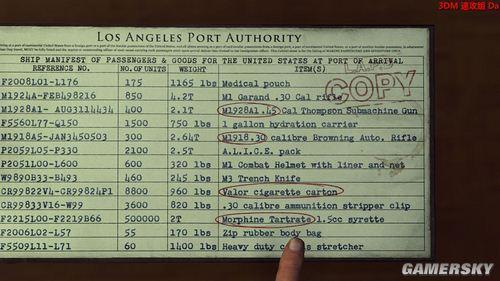 3DM 速攻组 Da
LOS ANGELES PORT AUTHORITY
SHIP MANIFEST OF PASSENGERS & GOODS FOR THE UNITED STATES AT PORT OF ARRIVAL
REFERENCE NO. NO. OF UNITS WEIGHT ITEM(S)
COPY
F2008L01-L176 175 1165 lbs Medical pouch
M1924A-FEB498216 850 4.2T M1 Garand .30 Cal rifle
M1928A1- AUG3114434 400 2.1T M1928A1.45 Cal Thompson Submachine Gun
F5560L77-Q150 1500 750 lbs 1 gallon hydration carrier
M1918A5-JAN3450503 300 2.64T M1918.30 calibre Browning Auto. Rifle
P2059L05-P330 2050 220 lbs A.L.I.C.E. pack
P2051L00-L600 600 320 lbs M1 Combat Helmet with liner and net
W9890B33-B493 460 245 lbs M3 Trench Knife
CR99822V4-CR99824P1 8800 960 lbs Valor cigarette carton
CR99833V16-W99 3600 820 lbs .30 calibre ammunition stripper clip
F2215L00-F2219B66 500000 2T Morphine Tartrate 1.5cc syrette
F2006L02-L57 55 170 lbs Zip rubber body bag
F5509L11-L71 60 1400 lbs Heavy duty stretcher
GAMERSKY